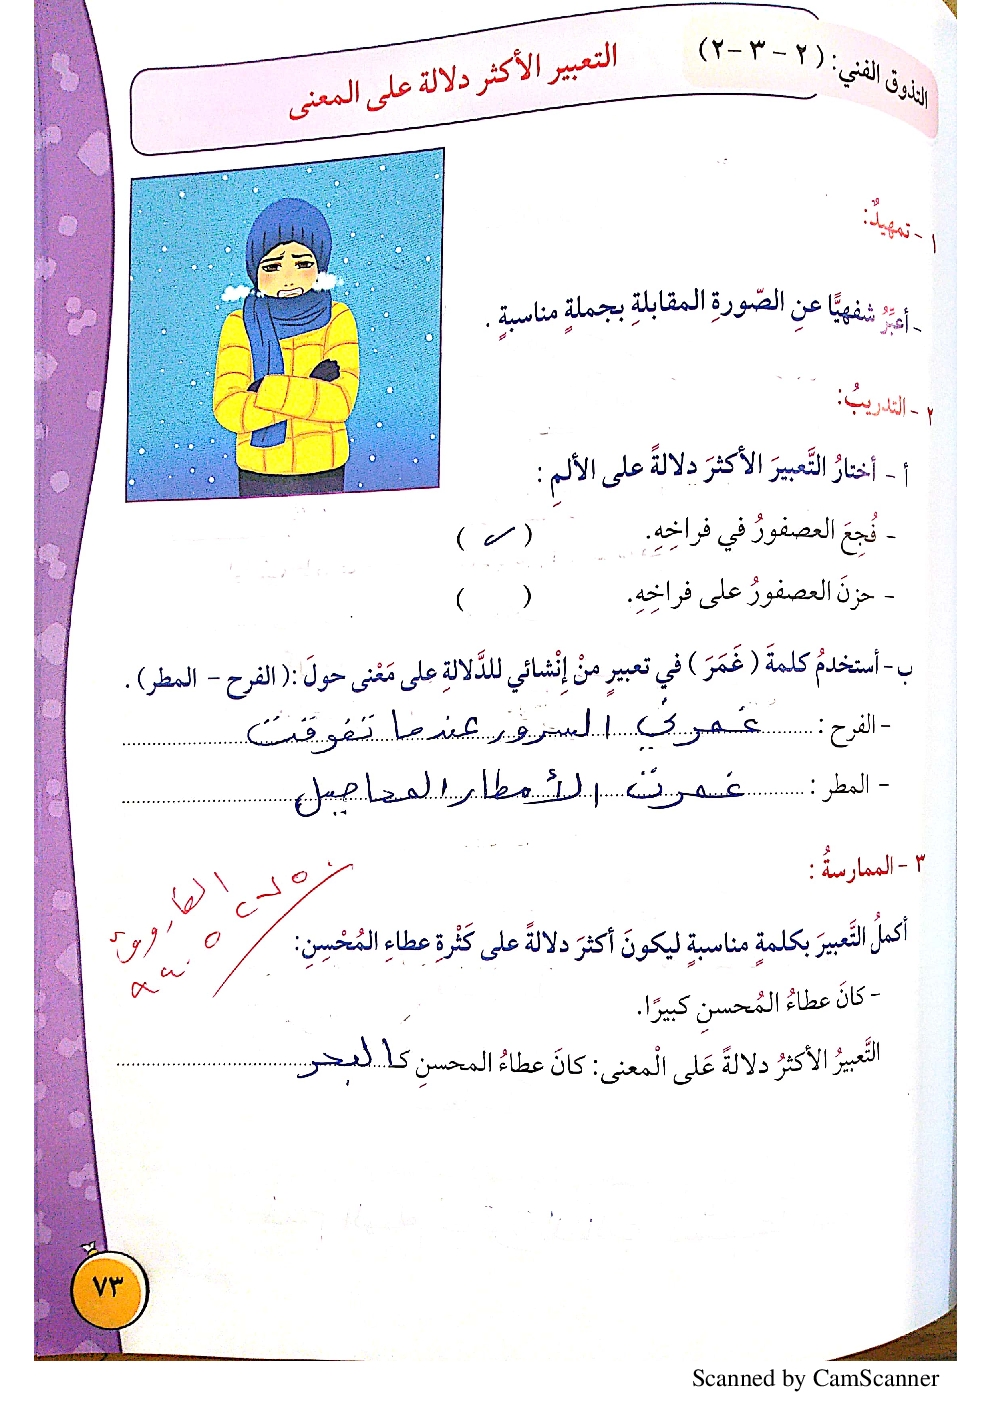 التذوق الفني: (٢ - ٣ - ٢)
التعبير الأكثر دلالة على المعنى
١ - تمهيدٌ:
- أعبِّرُ شفهيًّا عنِ الصّورةِ المقابلةِ بجملةٍ مناسبةٍ .
٢ - التدريبُ:
أ - أختارُ التَّعبيرَ الأكثرَ دلالةً على الألمِ :
- فُجِعَ العصفورُ في فراخِهِ. ( ✓ )
- حزنَ العصفورُ على فراخِهِ. ( )
ب- أستخدمُ كلمةَ ( غَمَرَ ) في تعبيرٍ منْ إنْشائي للدَّلالةِ على مَعْنى حولَ :( الفرح - المطر) .
- الفرح : غمرني السرور عندما تفوقت
- المطر : غمرت الأمطار المحاصيل
٣ - الممارسةُ :
أكملُ التَّعبيرَ بكلمةٍ مناسبةٍ ليكونَ أكثرَ دلالةً على كَثْرةِ عطاءِ المُحْسنِ:
- كانَ عطاءُ المُحسنِ كبيرًا.
التَّعبيرُ الأكثرُ دلالةً عَلى الْمعنى: كانَ عطاءُ المحسنِ كالبحر
٧٣
Scanned by CamScanner